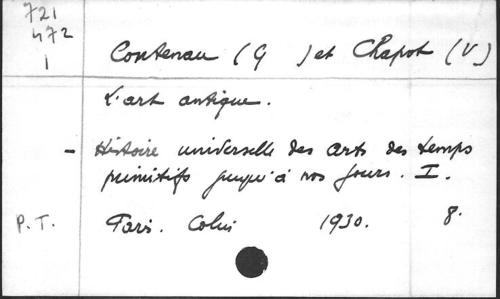 721
472
1
Contenau (G ) et Chapot (V)
L'art antique.
- Histoire universelle des arts des temps
primitifs jusqu'à nos jours. I.
P.T. Paris. Colin 1930. 8.